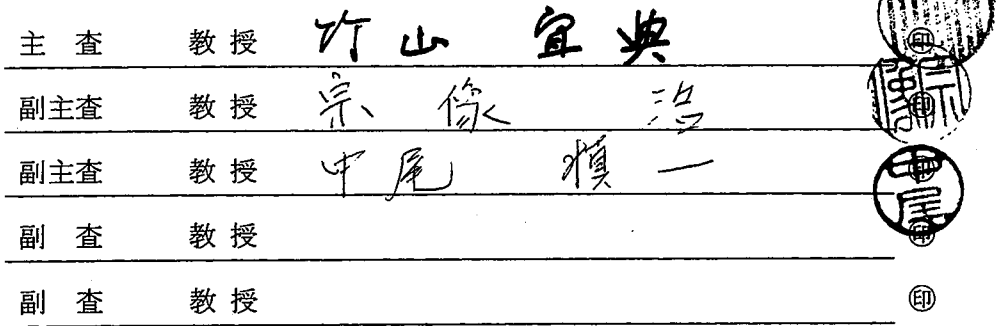 主 査 教 授 竹 山 宜 典 ㊞
副主査 教 授 宗 像 浩 ㊞
副主査 教 授 中 尾 慎 一 ㊞ 中尾
副 査 教 授 ㊞
副 査 教 授 ㊞